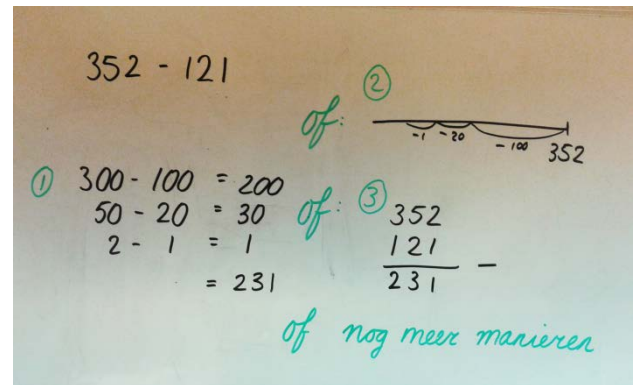 352 - 121
of: ②
-1 -20 -100 352
① 300 - 100 = 200
50 - 20 = 30
2 - 1 = 1
= 231
of: ③ 352
121 -
231
of nog meer manieren